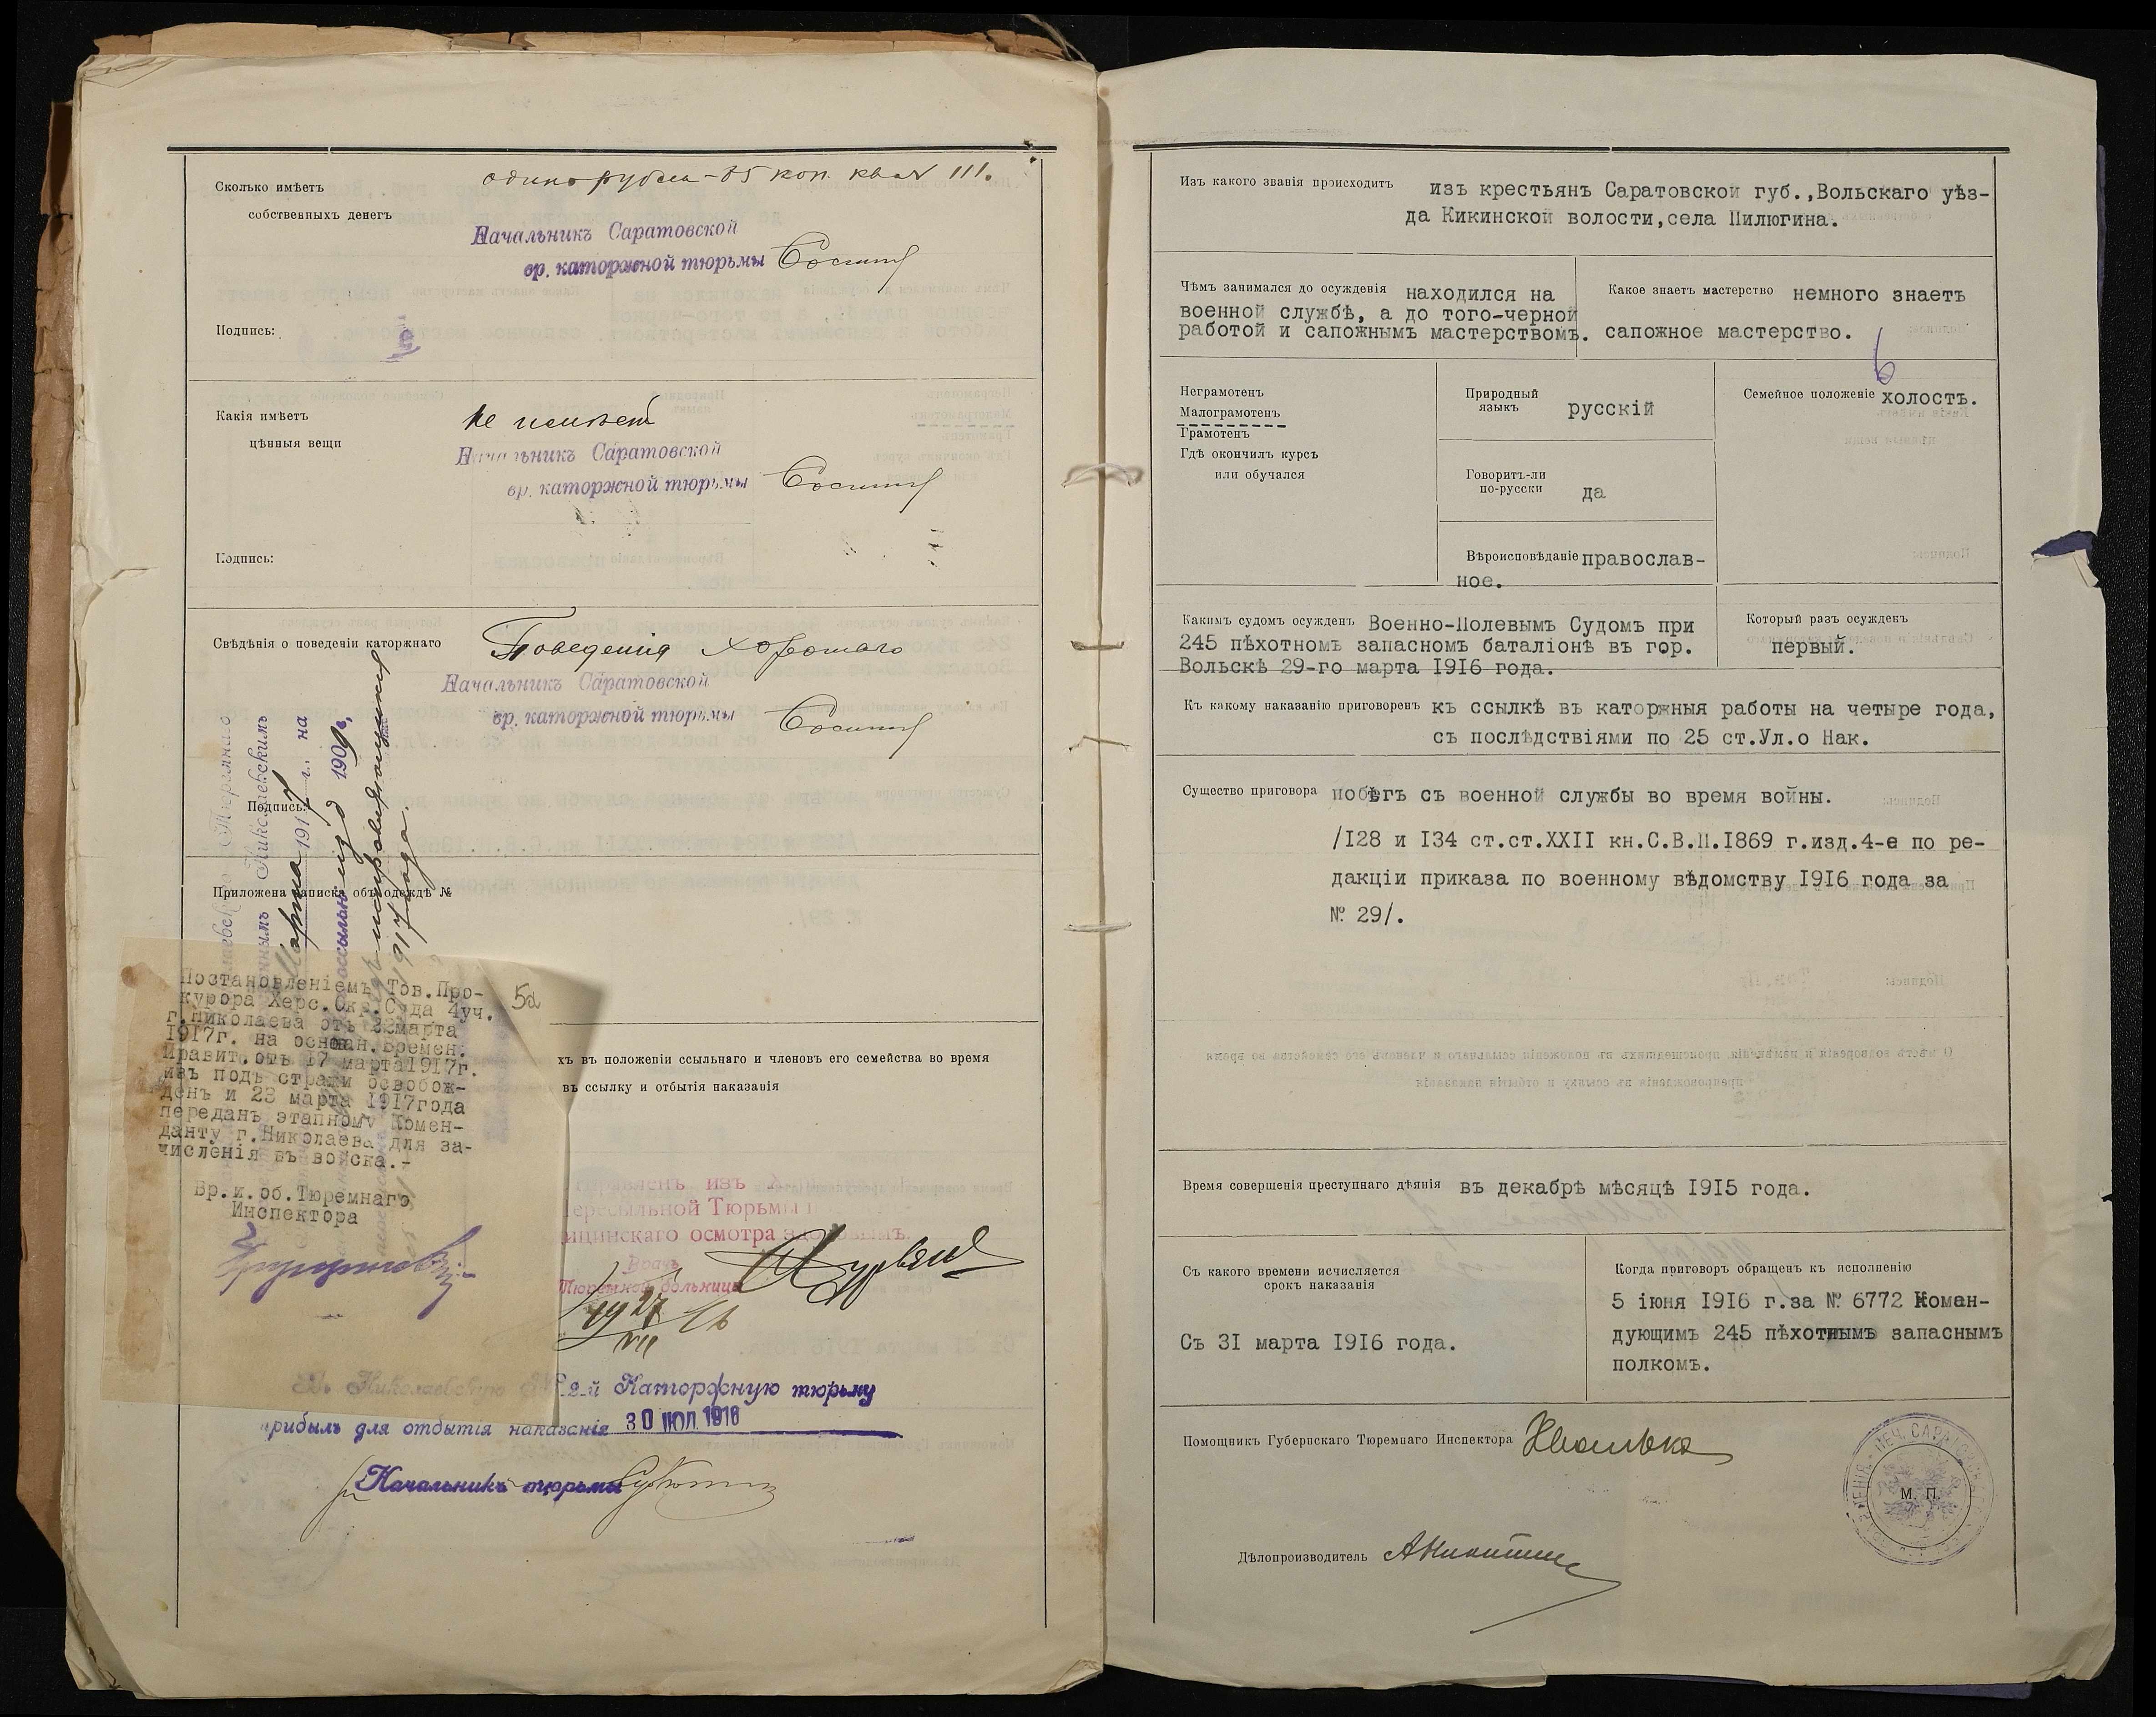 Сколько имѣетъ
собственныхъ денегъ
одинъ рубль-85 коп. кв. № 111.
Начальникъ Саратовской
вр. каторжной тюрьмы
Подпись:
Какія имѣетъ
цѣнныя вещи
Не имѣетъ
Начальникъ Саратовской
вр. каторжной тюрьмы
Подпись:
Свѣдѣнія о поведеніи каторжнаго
Поведенія хорошаго
Начальникъ Саратовской
вр. каторжной тюрьмы
Подпись:
Приложена записка объ одеждѣ №
Тюремнаго
Николаевскимъ
Марта 1917 г. на
1909
1917 года.
52
Постановленіемъ Тов.Про-
курора Херс.Окр.Суда 4уч.
г.Николаева отъ 22марта
1917г. на основан.Времен.
Правит.отъ 17 марта1917г.
изъ подъ стражи освобож-
денъ и 23 марта 1917года
переданъ этапному Комен-
данту г.Николаева для за-
численія въ войска.-
Вр.и.об.Тюремнаго
Инспектора
хъ въ положеніи ссыльнаго и членовъ его семейства во время
въ ссылку и отбытія наказанія
изъ
пересыльной Тюрьмы
ицинскаго осмотра здоровымъ.
Врачъ
Тюремной больницы
19 27/VII 16
Въ Николаевскую
й Каторжную тюрьму
прибылъ для отбытія наказанія 30 ИЮЛ 1916
Начальникъ тюрьмы
Изъ какого званія происходитъ изъ крестьянъ Саратовской губ.,Вольскаго уѣз-
да Кикинской волости,села Пилюгина.
Чѣмъ занимался до осужденія находился на
военной службѣ, а до того-черной
работой и сапожнымъ мастерствомъ.
Какое знаетъ мастерство немного знаетъ
сапожное мастерство.
6
Неграмотенъ
Малограмотенъ
Грамотенъ
Гдѣ окончилъ курсъ
или обучался
Природный
языкъ русскій
Говоритъ-ли
по-русски да
Вѣроисповѣданіе православ-
ное.
Семейное положеніе холостъ.
Какимъ судомъ осужденъ Военно-Полевымъ Судомъ при
245 пѣхотномъ запасномъ баталіонѣ въ гор.
Вольскѣ 29-го марта 1916 года.
Который разъ осужденъ
первый.
Къ какому наказанію приговоренъ къ ссылкѣ въ каторжныя работы на четыре года,
съ послѣдствіями по 25 ст.Ул.о Нак.
Существо приговора побѣгъ съ военной службы во время войны.
/128 и 134 ст.ст.XXII кн.С.В.П.1869 г.изд.4-е по ре-
дакціи приказа по военному вѣдомству 1916 года за
№ 29/.
Время совершенія преступнаго дѣянія въ декабрѣ мѣсяцѣ 1915 года.
Съ какого времени исчисляется
срокъ наказанія
Съ 31 марта 1916 года.
Когда приговоръ обращенъ къ исполненію
5 іюня 1916 г.за № 6772 Коман-
дующимъ 245 пѣхотнымъ запаснымъ
полкомъ.
Помощникъ Губернскаго Тюремнаго Инспектора
М. П.
Дѣлопроизводитель АНикитин